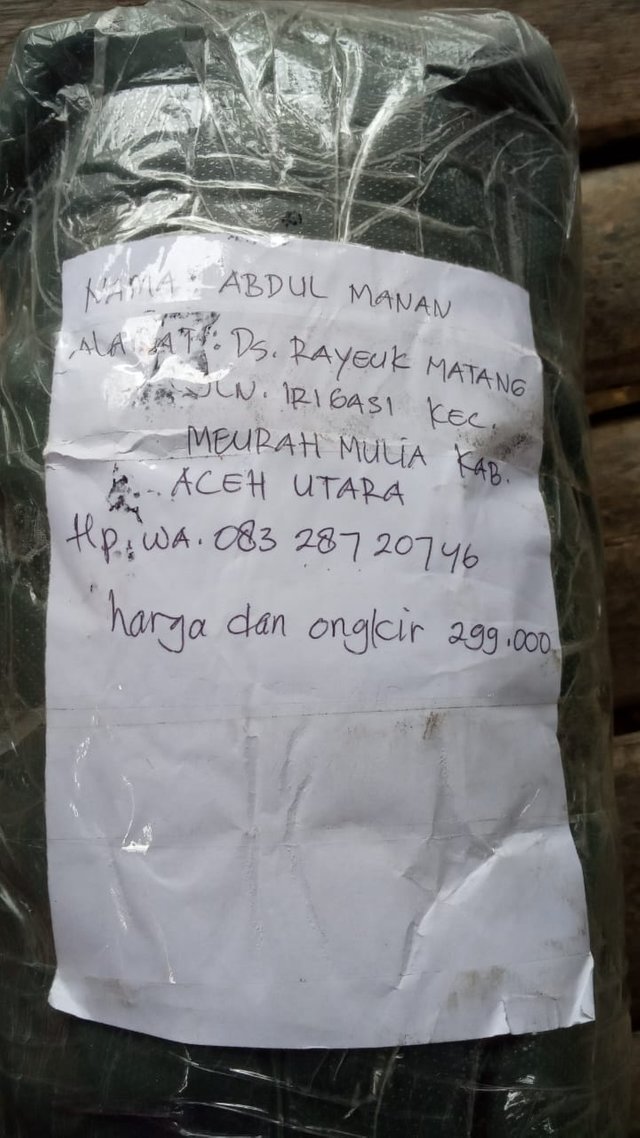 NAMA : ABDUL MANAN
ALAMAT : Ds. RAYEUK MATANG
JLN. IRIGASI KEC.
MEURAH MULIA KAB.
ACEH UTARA
Hp. WA. 083 287 20746
harga dan ongkir 299.000